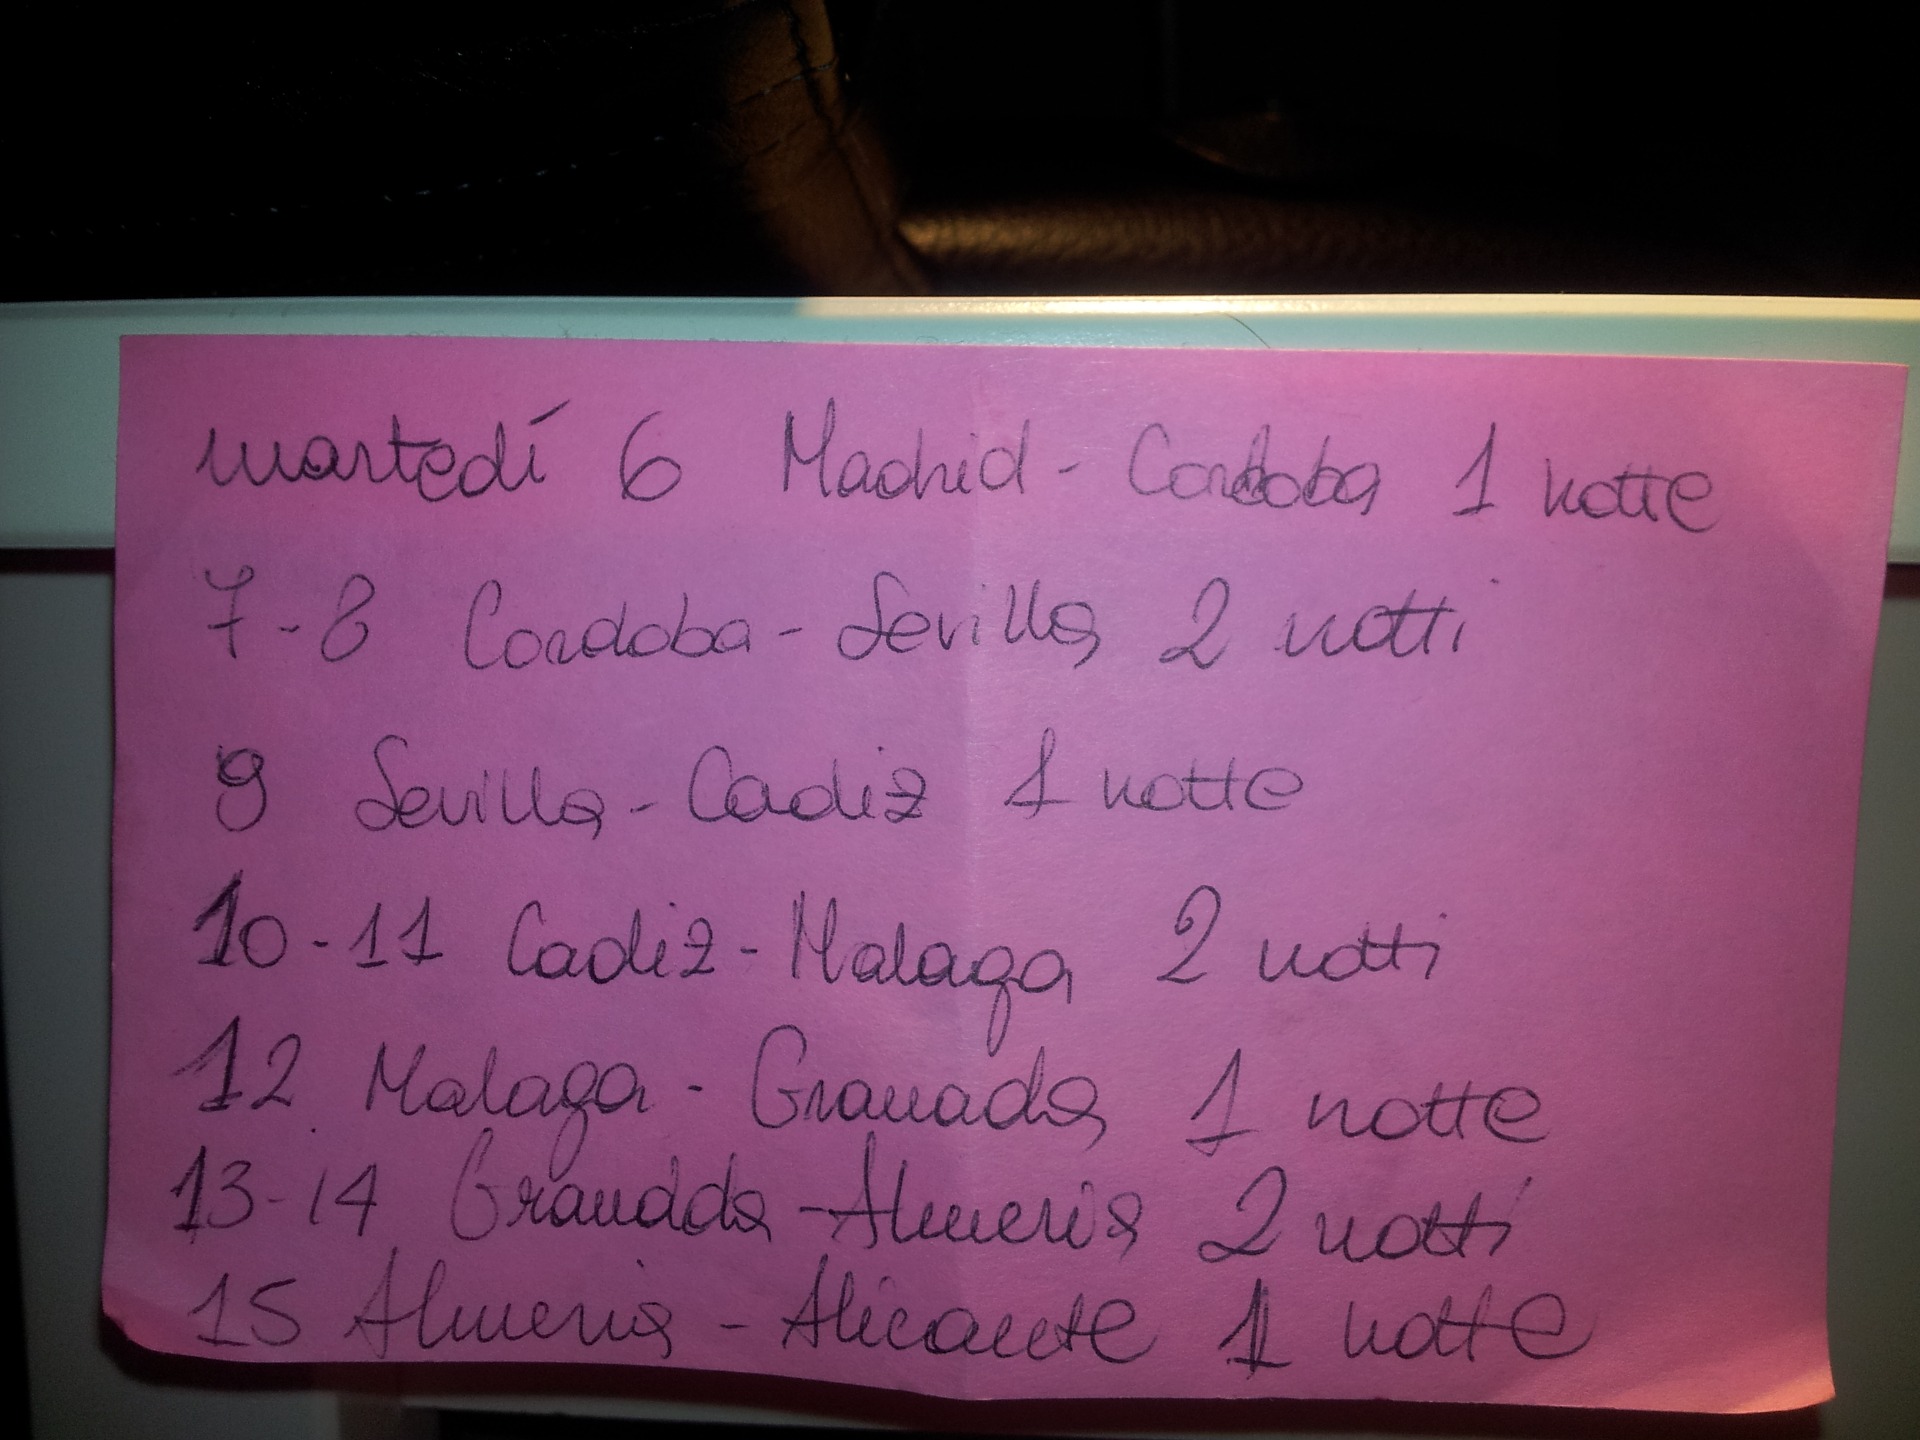 martedí 6 Madrid - Cordoba 1 notte
7-8 Cordoba - Sevilla 2 notti
9 Sevilla - Cadiz 1 notte
10-11 Cadiz - Malaga 2 notti
12 Malaga - Granada 1 notte
13-14 Granada - Almeria 2 notti
15 Almeria - Alicante 1 notte